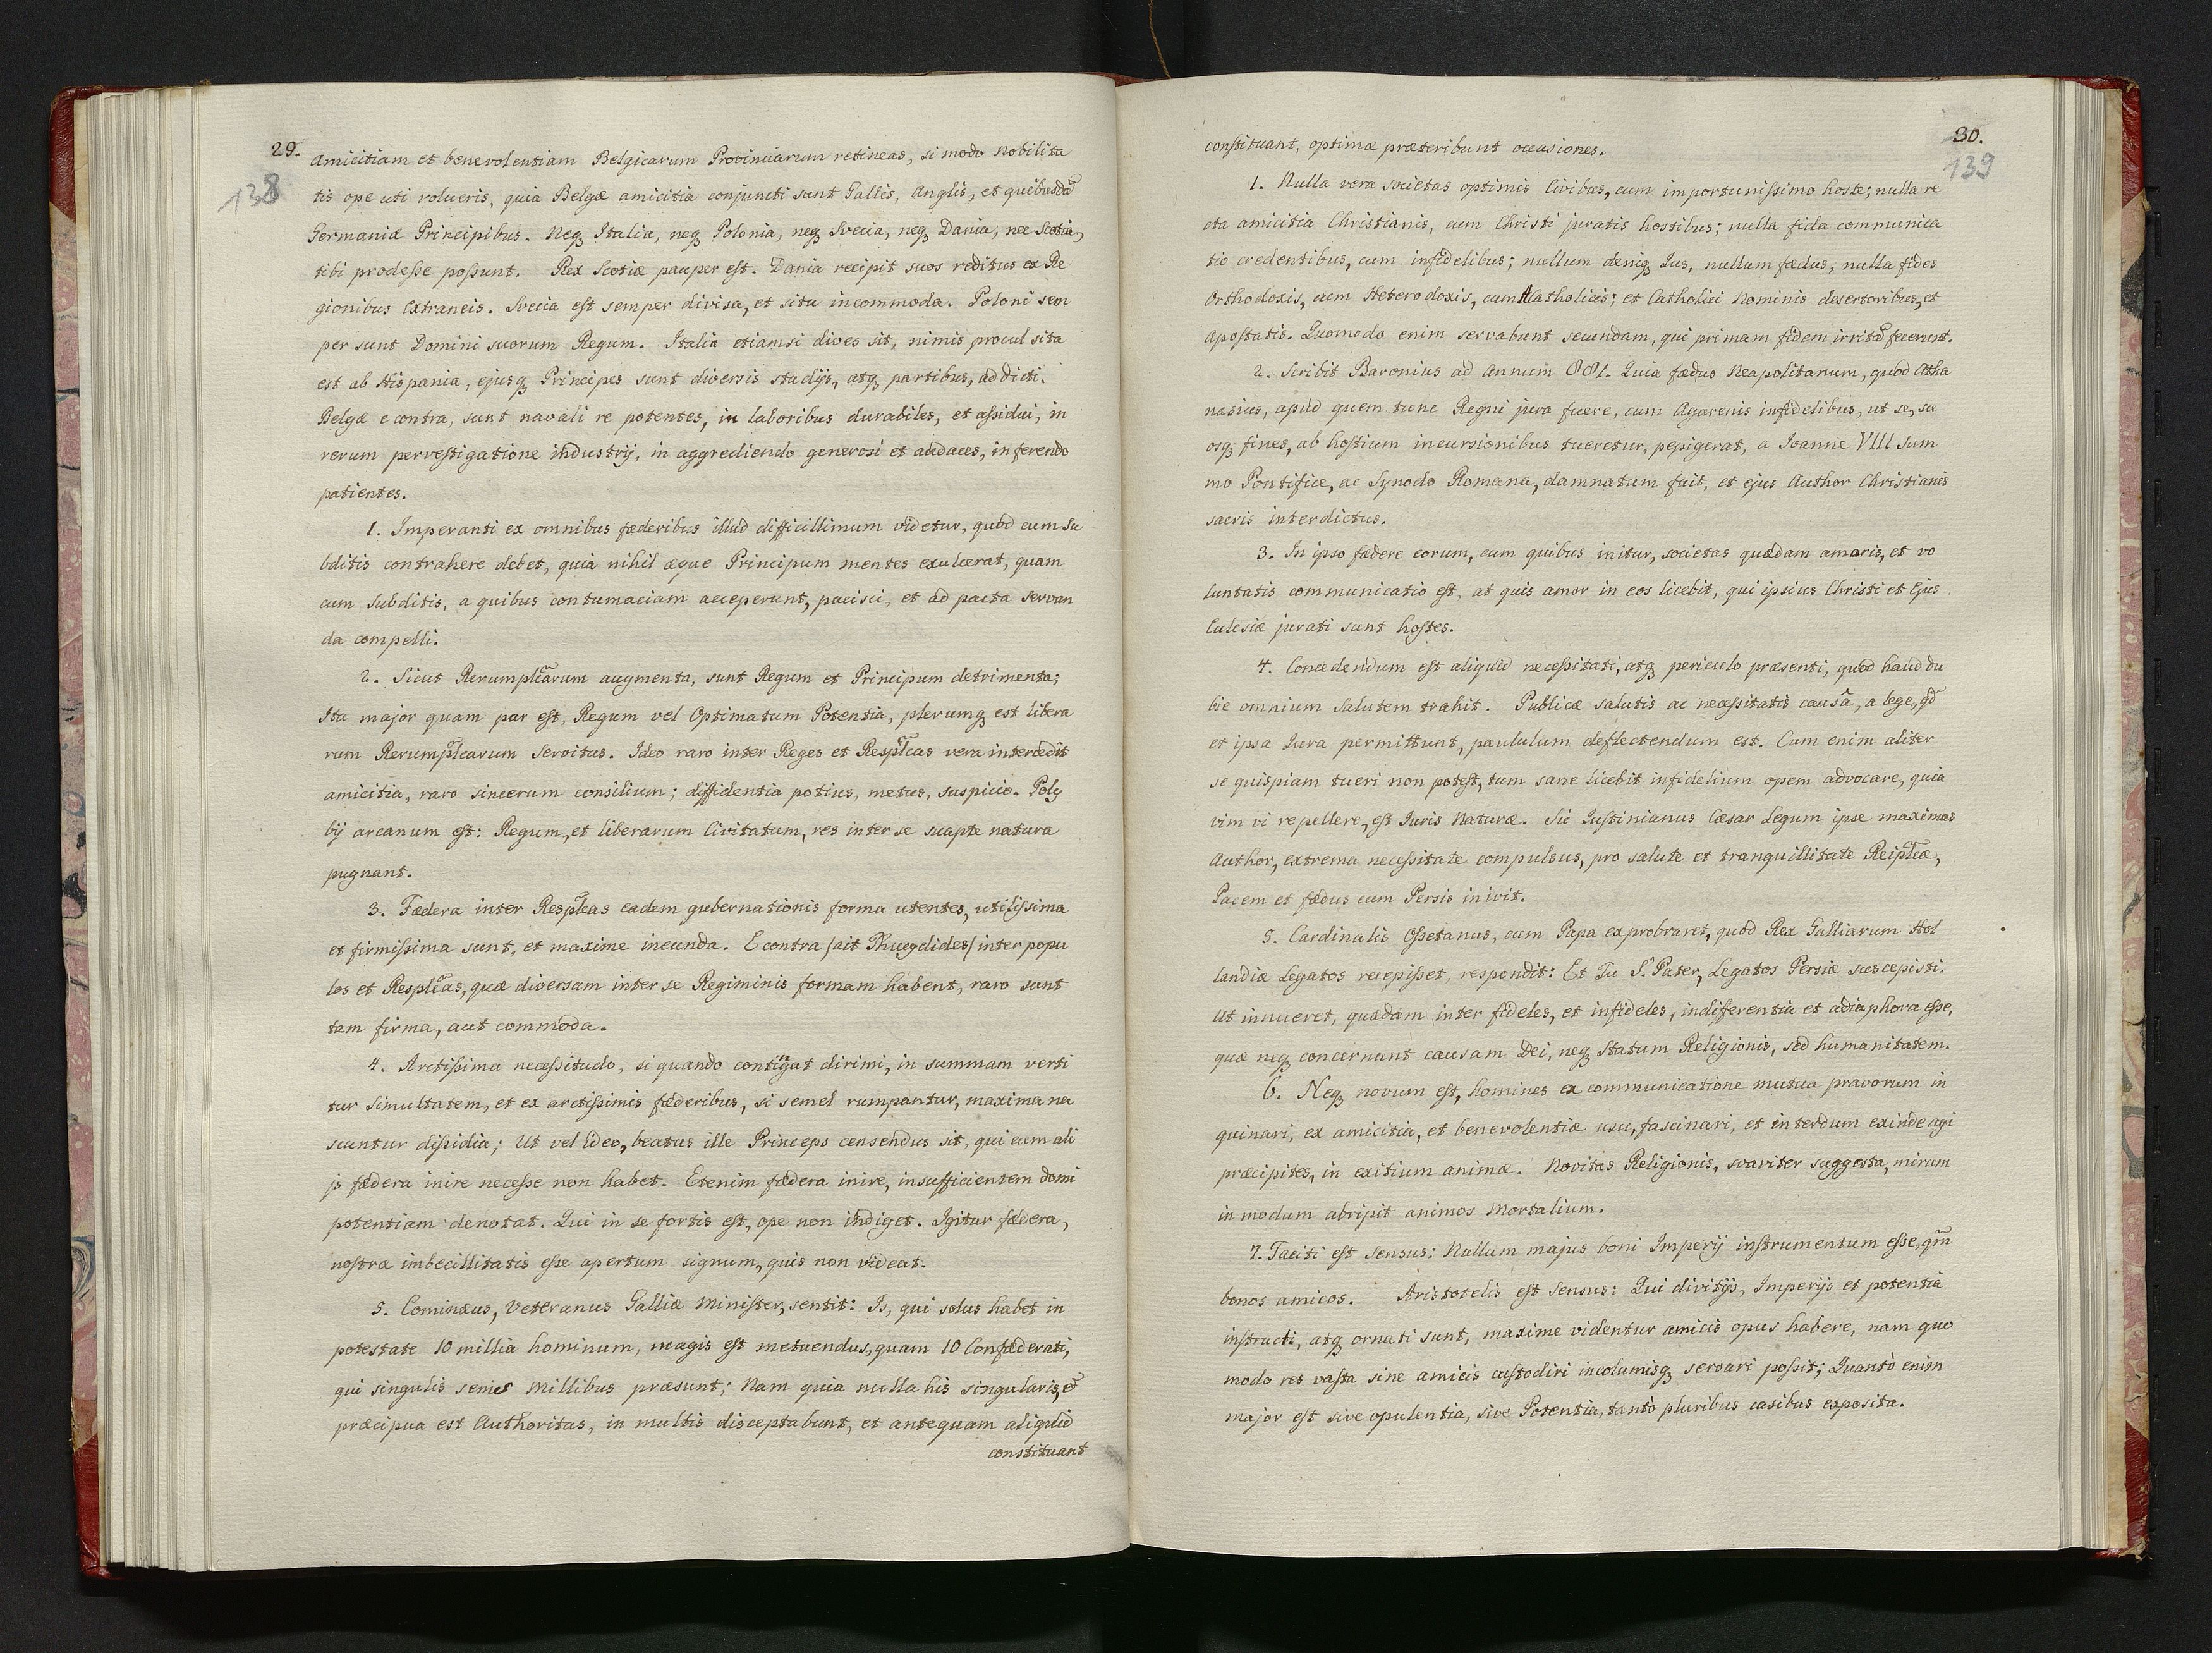 29.
138
Amicitiam et benevolentiam Belgicarum Provinciarum retineas, si modo Nobilita
tis ope uti volueris, quia Belgæ amicitiæ conjuncti sunt Gallis, Anglis, et quibusdã
Germaniæ Principibus. Neq Italia, neq Polonia, neq Svecia, neq Dania, nec Scotia,
tibi prodesse possunt. Rex Scotiæ pauper est. Dania recipit suos reditus ex Re
gionibus Extraneis. Svecia est semper divisa, et situ incommoda. Poloni sem
per sunt Domini suorum Regum. Italia etiamsi dives sit, nimis procul sita
est ab Hispania, ejusq Principes sunt diversis studijs, atq partibus, addicti.
Belgæ e contra, sunt navali re potentes, in laboribus durabiles, et assidui, in
rerum pervestigatione industrij, in aggrediendo generosi et audaces, in ferendo
patientes.
1. Imperanti ex omnibus fæderibus illud difficillimum videtur, quod cum Su
bditis contrahere debet, quia nihil æque Principum mentes exulcerat, quam
cum Subditis, a quibus contumaciam acceperunt, pacisci, et ad pacta servan
da compelli.
2. Sicut Rerumplĩcarum augmenta, sunt Regum et Principum detrimenta;
Ita major quam par est, Regum vel Optimatum Potentia, plerumq est libera
rum Rerumplĩcarum Servitus. Ideo raro inter Reges et Resplĩcas vera intercedit
amicitia, raro sincerum consilium; diffidentia potius, metus, suspicio. Poly
bij arcanum est: Regum, et liberarum Civitatum, res inter se suapte natura
pugnant.
3. Fædera inter Resplĩcas eadem gubernationis forma utentes, utilissima
et firmissima sunt, et maxime ineunda. E contra /ait Thucydides/ inter popu
los et Resplĩcas, quæ diversam inter se Regiminis formam habent, raro sunt
tam firma, aut commoda.
4. Arctissima necessitudo, si quando contingat dirimi, in summam verti
tur Simultatem, et ex arctissimis fæderibus, si semel rumpantur, maxima na
scuntur dissidia; Ut vel ideo, beatus ille Princeps censendus sit, qui cum ali
js fædera inire necesse non habet. Etenim fædera inire, insufficientem domi
potentiam denotat. Qui in se fortis est, ope non indiget. Igitur fædera,
nostræ imbecillitatis esse apertum signum, quis non videat.
5. Cominæus, Veteranus Galliæ Minister, sentit: Is, qui solus habet in
potestate 10 millia hominum, magis est metuendus, quam 10 Confæderati,
qui singulis senis Millibus præsunt; Nam quia nulla his singularis, et
præcipua est Authoritas, in multis disceptabunt, et antequam aliquid
constituant
30.
139
constituant, optimæ præteribunt occasiones.
1. Nulla vera societas optimis Civibus, cum importunissimo hoste; nulla re
cta amicitia Christianis, cum Christi juratis hostibus; nulla fida communica
tio credentibus, cum infidelibus; nullum deniq Jus, nullum fædus, nulla fides
Orthodoxis, cum Heterodoxis, cum Acatholicis; et Catholici Nominis desertoribus, et
Apostatis. Quomodo enim servabunt secundam, qui primam fidem irritã fecerunt.
2. Scribit Baronius ad Annum 881. Quia fædus Neapolitanum, quod Atha
nasius, apud quem tunc Regni jura fuere, cum Agarenis infidelibus, ut se, su
osq fines, ab hostium incursionibus tueretur, pepigerat, a Joanne VIII Sum
mo Pontifice, ac Synodo Romana, damnatum fuit, et ejus Author Christianis
sacris interdictus.
3. In ipso fædere eorum, cum quibus initur, societas quædam amoris, et vo
luntatis communicatio est, at quis amor in eos licebit, qui ipsius Christi et Ejus
Eclesiæ jurati sunt hostes.
4. Concedendum est aliquid necessitati, atq periculo præsenti, quod haud du
bie omnium Salutem trahit. Publicæ salutis ac necessitatis causâ, a lege, qd
et ipsa Jura permittunt, paululum deflectendum est. Cum enim aliter
se quispiam tueri non potest, tum sane licebit infidelium opem advocare, quia
vim vi repellere, est Juris Naturæ. Sic Justinianus Cæsar Legum ipse maximus
Author, extrema necessitate compulsus, pro salute et tranquillitate Reiplĩcæ,
Pacem et fædus cum Persis inivit.
5. Cardinalis Ossetanus, cum Papa exprobraret, quod Rex Galliarum Hol
landiæ Legatos recepisset, respondit: Et Tu S. Pater, Legatos Persiæ suscepisti.
Ut innueret, quædam inter fideles, et infideles, indifferentia et adiaphora esse,
quæ neq concernunt causam Dei, neq Statum Religionis, sed humanitatem.
6. Neq novum est, homines ex communicatione mutua pravorum in
quinari, ex amicitia, et benevolentiæ usu, fascinari, et interdum exinde agi
præcipites, in exitium animæ. Novitas Religionis, svaviter suggesta, mirum
in modum abripit animos Mortalium.
7. Taciti est Sensus: Nullum majus boni Imperij instrumentum esse, qm̃
bonos amicos. Aristotelis est Sensus: Qui divitijs, Imperijs et potentia
instructi, atq ornati sunt, maxime videntur amicis opus habere, nam quo
modo res vasta sine amicis custodiri incolumisq servari possit; Quantò enim
major est sive opulentia, sive Potentia, tantò pluribus casibus exposita.